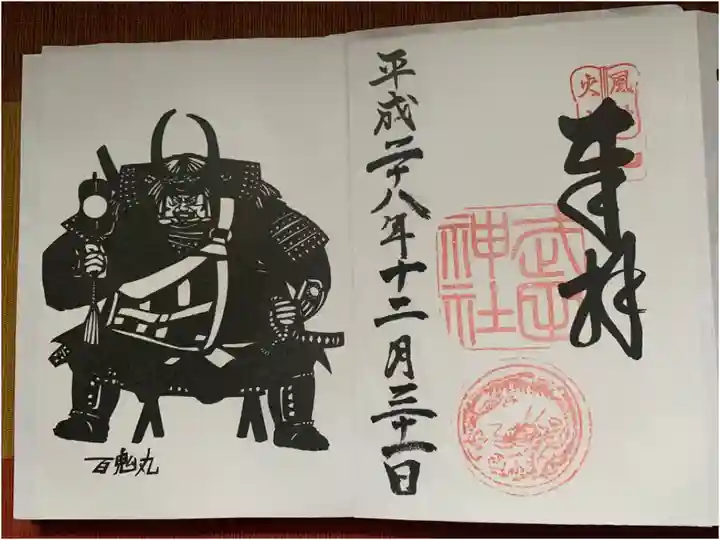 奉拝
武田
神社
平成二十八年十二月三十一日
百鬼丸